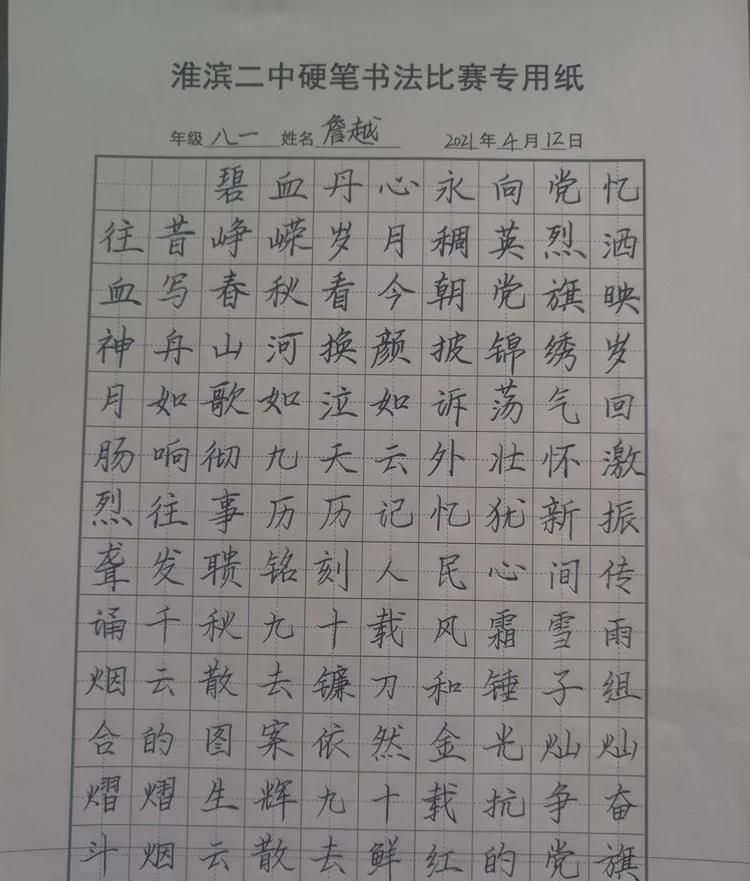 淮滨二中硬笔书法比赛专用纸
年级 八一 姓名 詹越 2021年4月12日
碧血丹心永向党忆
往昔峥嵘岁月稠英烈洒
血写春秋看今朝党旗映
神舟山河换颜披锦绣岁
月如歌如泣如诉荡气回
肠响彻九天云外壮怀激
烈往事历历记忆犹新振
聋发聩铭刻人民心间传
诵千秋九十载风霜雪雨
烟云散去镰刀和锤子组
合的图案依然金光灿灿
熠熠生辉九十载抗争奋
斗烟云散去鲜红的党旗